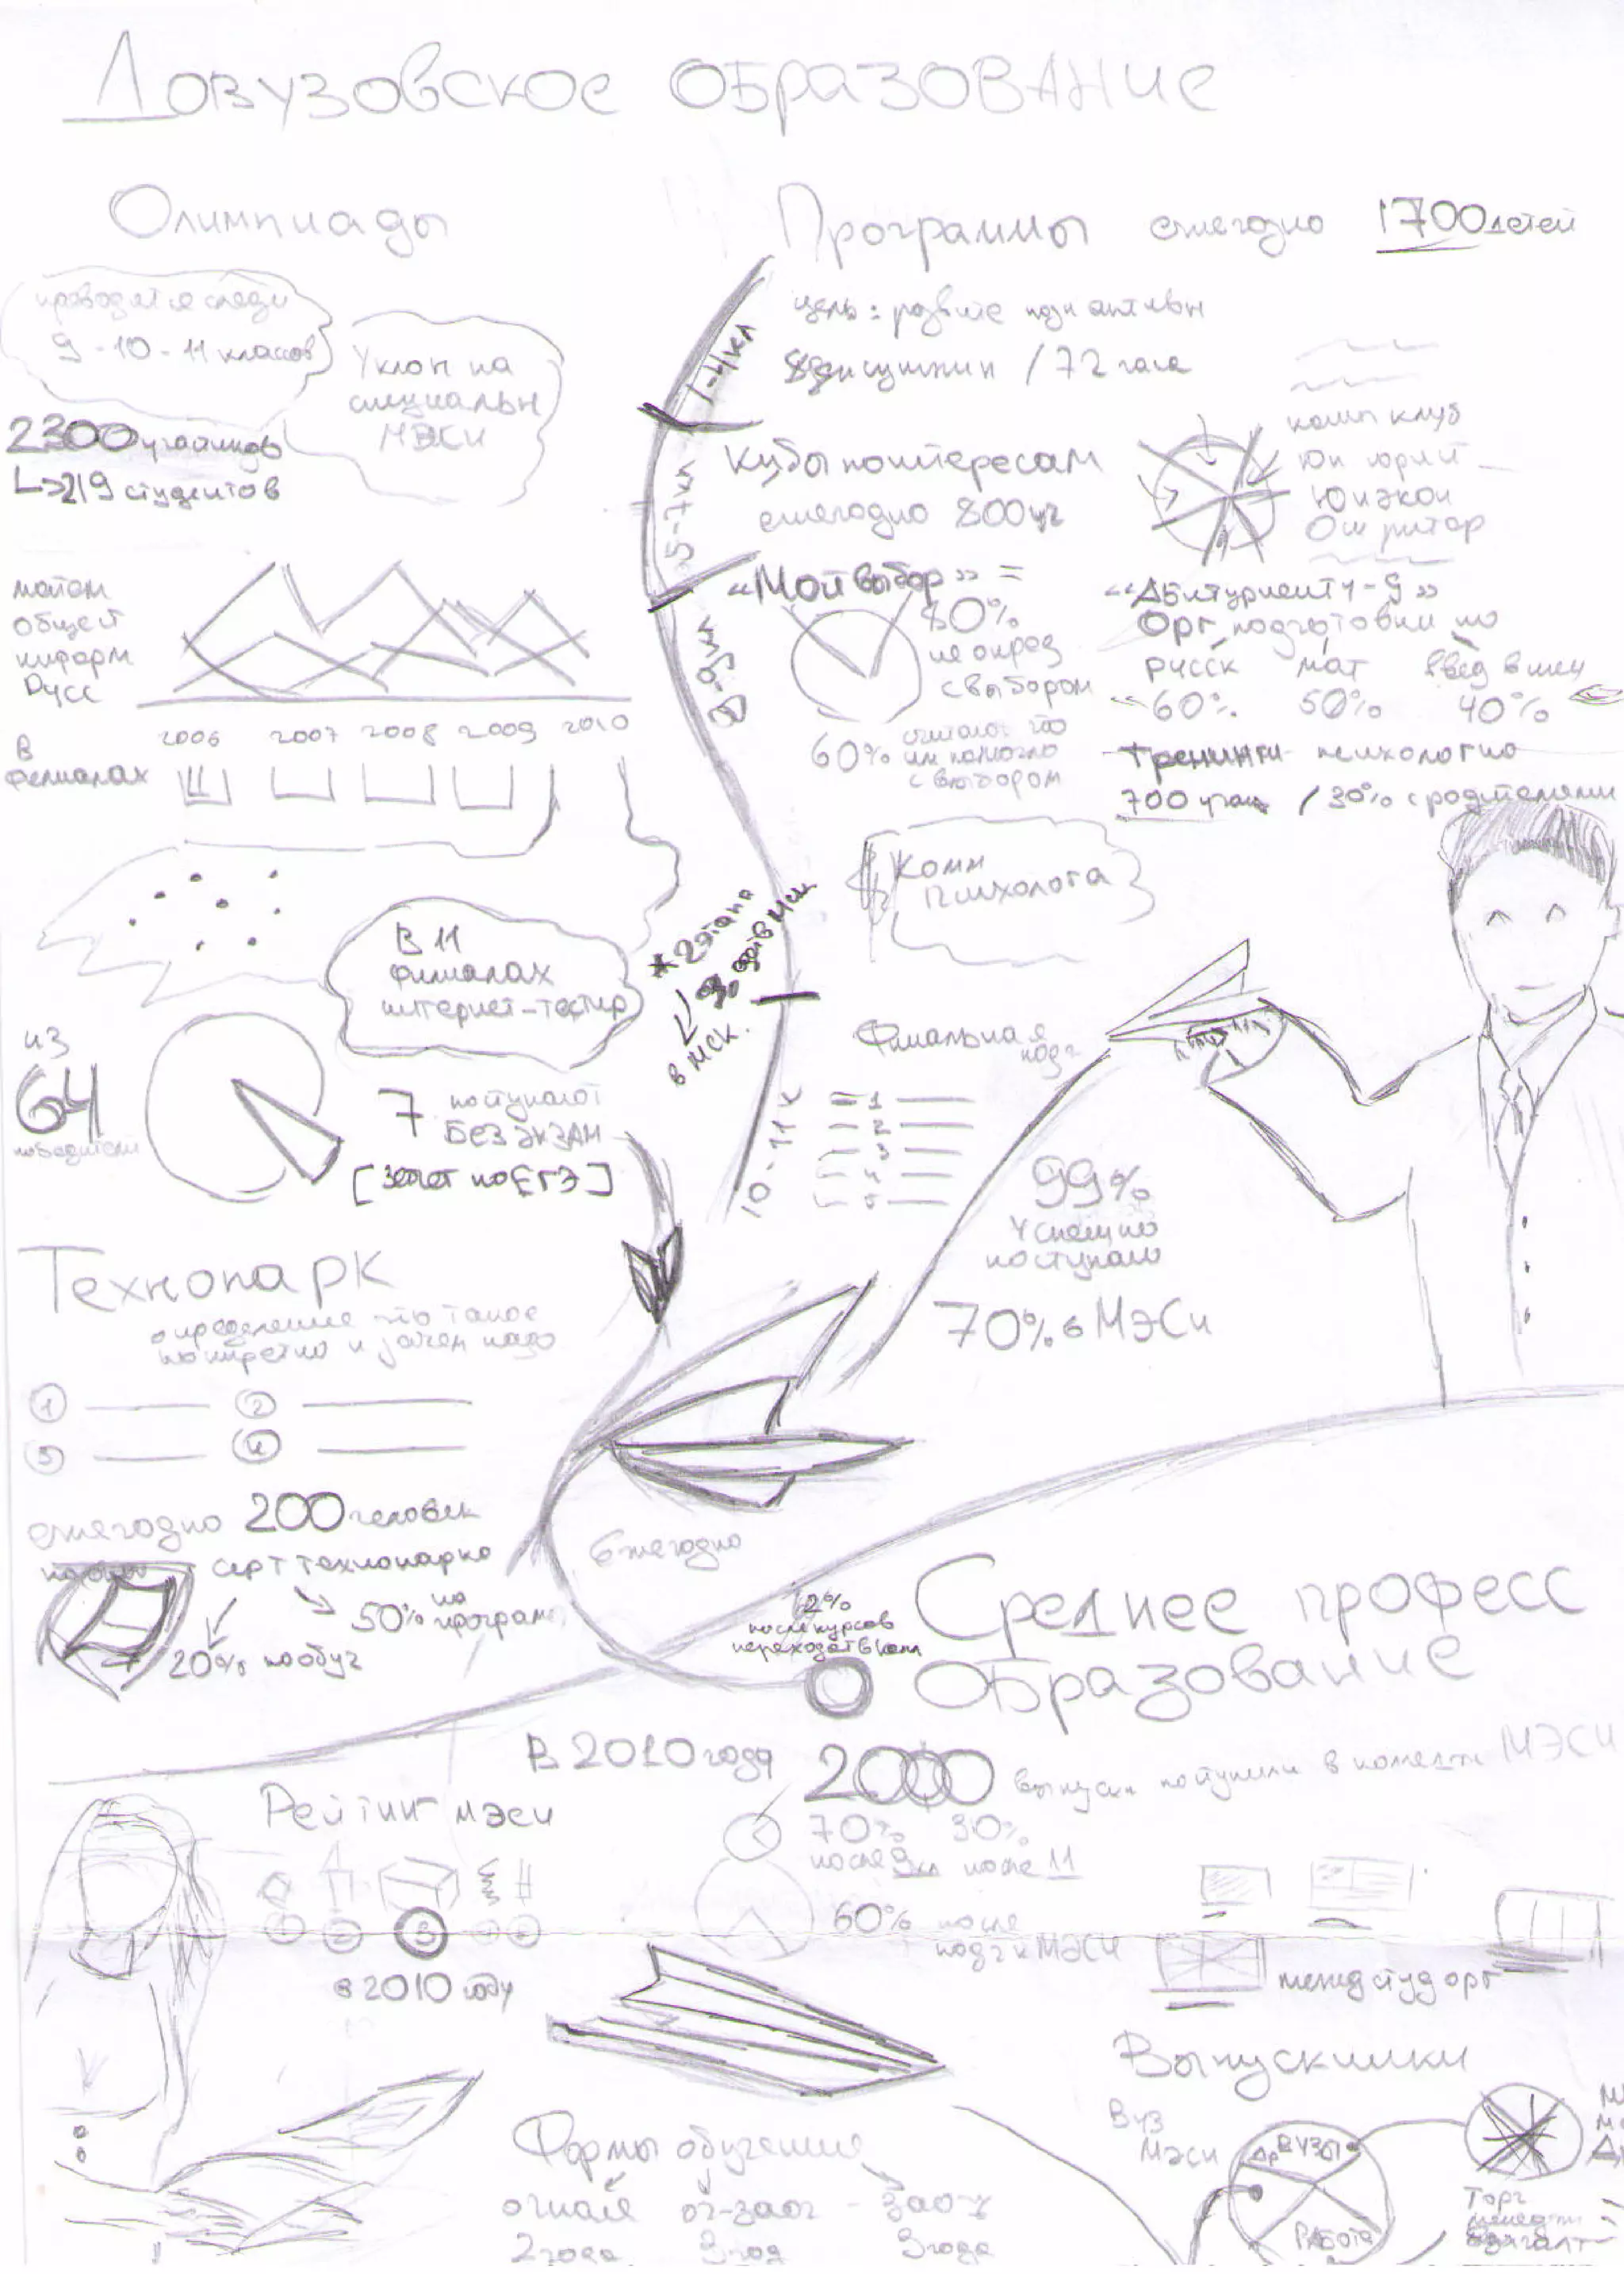 Довузовское образование
Олимпиады
проводятся среди
9-10-11 классов
Уклон на
специальн
МЭСИ
2300 участников
219 студентов
матем
общест
информ
Русс
2006 2007 2008 2009 2010
В
филиалах
В 11
филиалах
интернет-тестир
из
64
победители
7 поступают
БЕЗ ЭКЗАМ
[зачет по ЕГЭ]
Программы ежегодно 1700 детей
1-4 кл
цель: развите позн активн
/ 72 часа
5-7 кл
по интересам
ежегодно 800 уч
комп клуб
Юн юрист
Юн экон
8-9 кл
«Мой выбор» =
80%
не опред
с выбором
60% считают что
им помогло
с выбором
«Абитуриент-9»
Орг подготовки по
русск мат введ в
60% 50% 40%
Тренинги психолого
700 учащ / 30% с родителями
Комн
Психолога
* 2 этапа
в мск.
10-11 к
Финальная
подг
1
2
3
4
5
99%
Успешно
поступают
70% в МЭСИ
Технопарк
определение что такое
конкретно и зачем надо
1 2
3 4
ежегодно 200 человек
серт технопарка
50% на
програм
20% по обуч
Ежегодно
2%
после курсов
переходят в колл
Среднее професс
Образование
В 2010 году 2000 выпускн поступили в колледж МЭСИ
70% 30%
после 9 кл после 11
60% после
подг к МЭСИ
Рейтинг МЭСИ
1 2 3 4 5
в 2010 году
межд студ орг
Выпускники
ВУЗ
МЭСИ
Др ВУЗЫ
Работа
Торг
менедж
Бухгалт
Формы обучение
очная оч-заоч - заоч
2 года 3 год 3 года